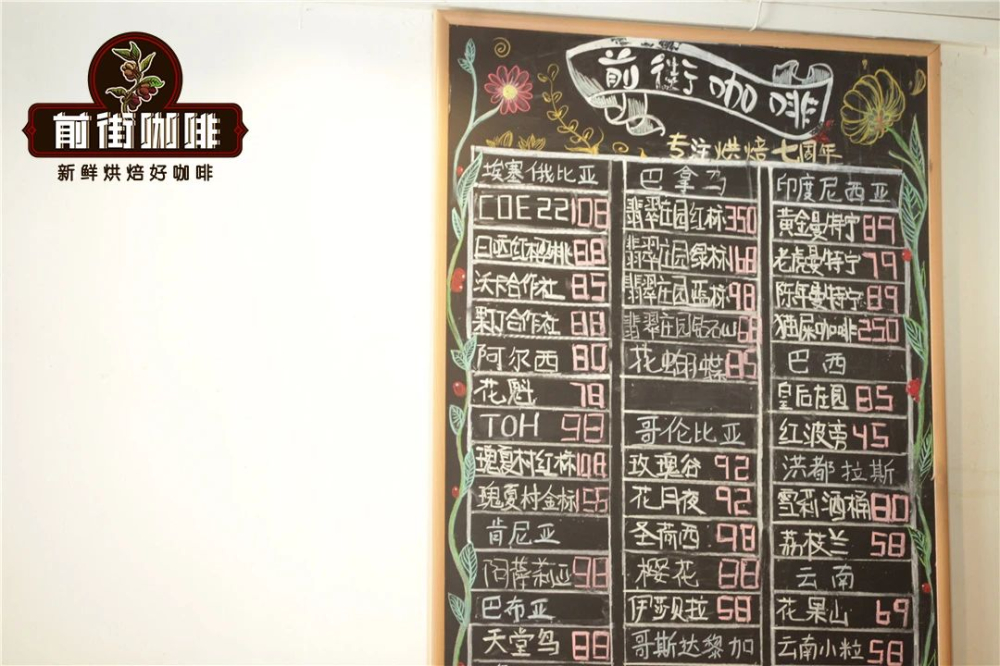 前街咖啡
新鲜烘焙好咖啡
前街咖啡
专注烘焙七周年
埃塞俄比亚
COE22 108
日晒红樱桃 88
沃卡合作社 85
果丁合作社 88
阿尔西 80
花魁 78
TOH 98
瑰夏村红标 108
瑰夏村金标
肯尼亚
阿萨莉亚 98
巴布亚
天堂鸟 88
巴拿马
翡翠庄园红标 350
翡翠庄园绿标 168
翡翠庄园蓝标 98
翡翠庄园钻石山 68
花蝴蝶 85
哥伦比亚
玫瑰谷 92
花月夜 92
圣荷西 98
樱花 88
伊莎贝拉 58
哥斯达黎加
印度尼西亚
黄金曼特宁 89
老虎曼特宁 79
陈年曼特宁 89
猫屎咖啡 250
巴西
皇后庄园 85
红波旁 45
洪都拉斯
雪莉酒桶 80
荔枝兰 58
云南
花果山 69
云南小粒 58